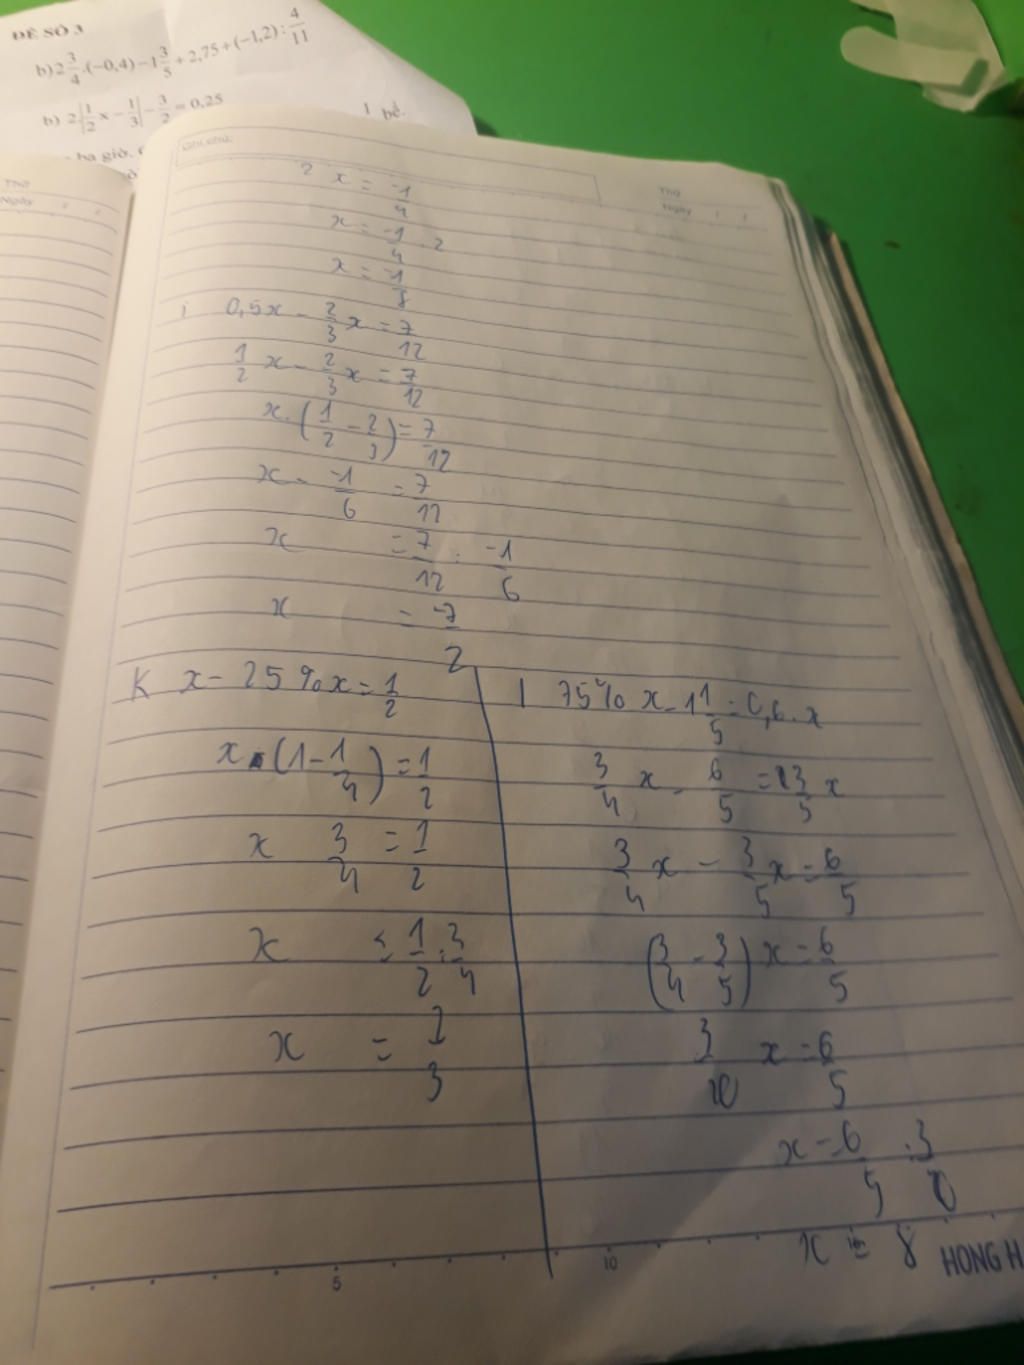 ĐỀ SỐ 3
b) 2 3/4 .(−0,4) − 1 3/5 + 2,75 + (−1,2) : 4/11
b) 2|1/2 x − 1/3| − 3/2 = 0,25
1 bể.
ba giờ.
Thứ
Ngày
Ghi chú:
Thứ
Ngày
2 x = -1/4
x = -1/4 . 2
x = -1/8
i 0,5x - 2/3 x = 7/12
1/2 x - 2/3 x = 7/12
x. (1/2 - 2/3) = 7/12
x - -1/6 = 7/12
x = 7/12 : -1/6
x = -7/2
K x - 25%x = 1/2
x . (1 - 1/4) = 1/2
x 3/4 = 1/2
x = 1/2 : 3/4
x = 2/3
l 75% x - 1 1/5 = 0,6. x
3/4 x - 6/5 = 3/5 x
3/4 x - 3/5 x = 6/5
(3/4 - 3/5) x = 6/5
3/20 x = 6/5
x = 6/5 : 3/20
x = 8
5
10
HONG H